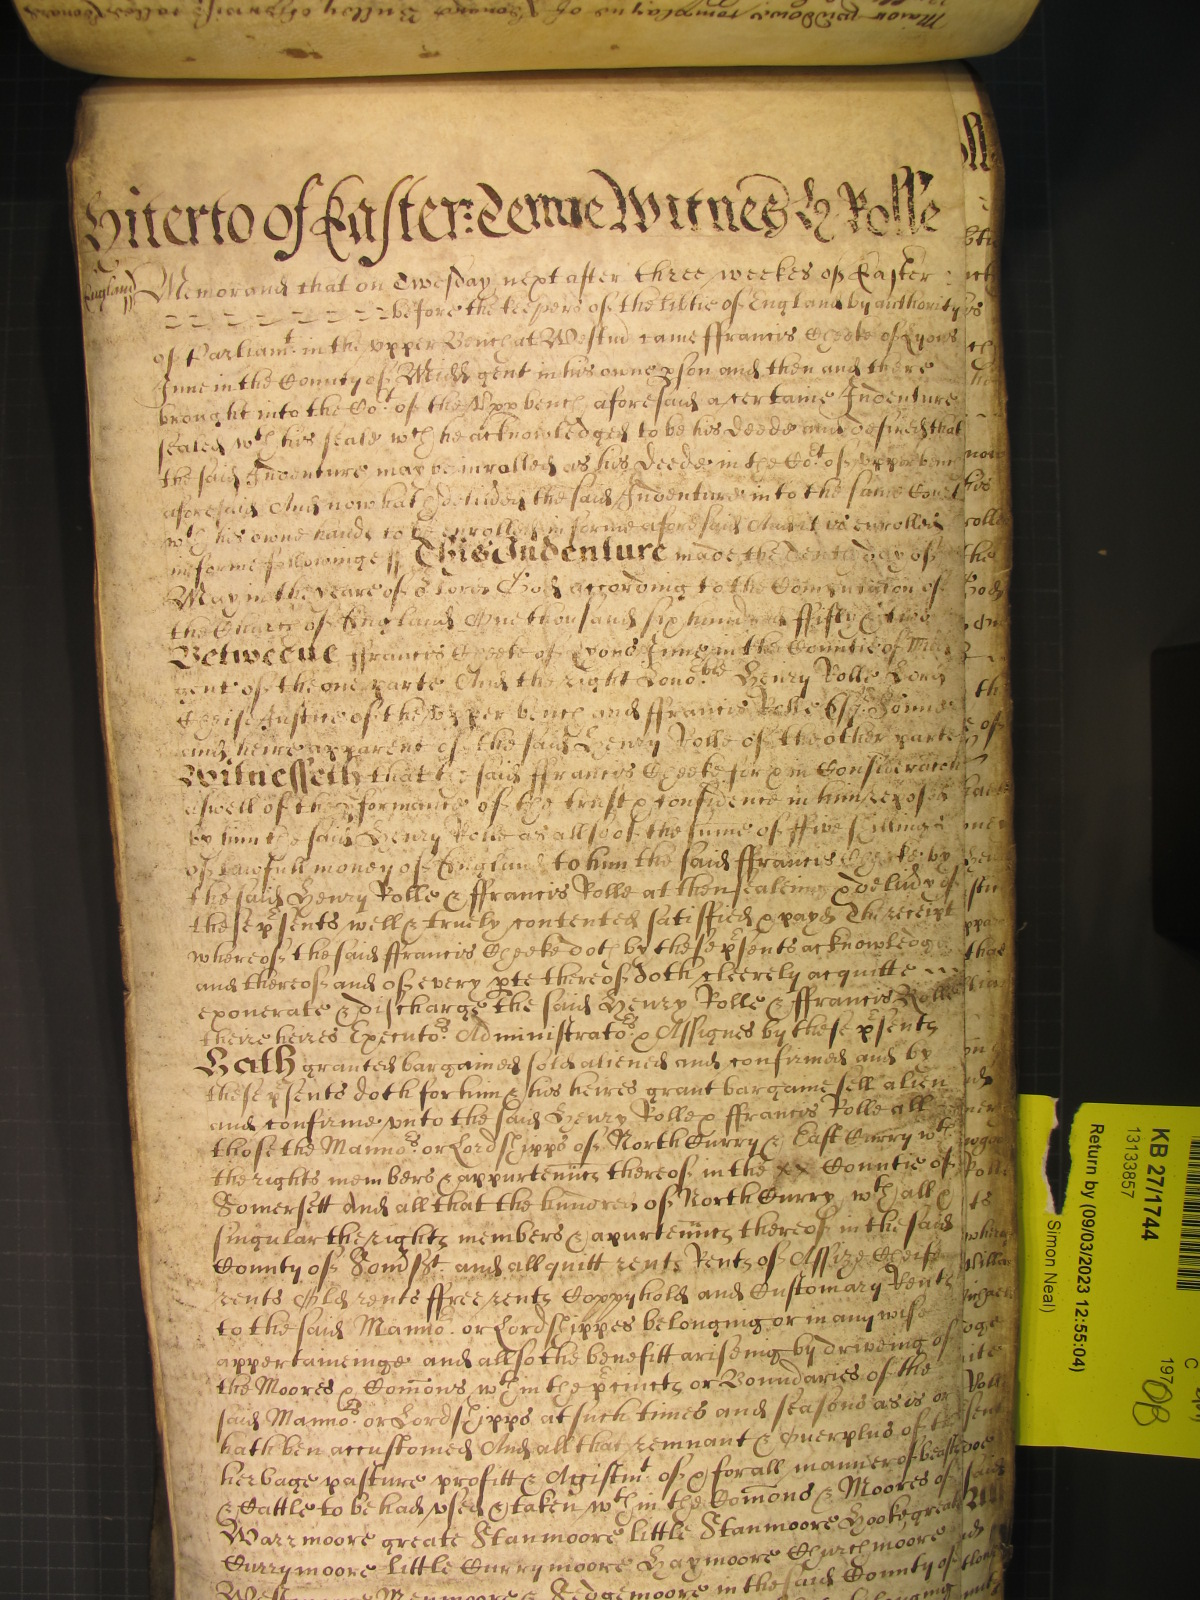 Hiterto of Easter: Terme Witnes H Rolle
England Memorand that on Twesday next after three weekes of Easter
before the keepers of the libtie of England by authority
of Parliamt. in the upper Bench at Westm came ffrancis Cheeke of Lyons
Inne in the County of Midd gent in his owne pson and then and there
brought into the Cort of the Upp bench aforesaid a certaine Indenture
sealed wth his seale wch he acknowledged to be his deede and desired that
the said Indenture may be inrolled as his deede in the Cort of upper bench
aforesaid And now hath delived the said Indenture into the same Court
wth his owne hands to be enrolled in forme aforesaid And it is enrolled
in forme followinge ss This Indenture made the Tenth day of
May in the yeare of or Lord God according to the Computacon of
the Church of England One thousand six hundred ffifty & two
Betweene ffrancis Cheeke of Lyons Inne in the Countie of Midd
gent of the one parte And the right honoble Henry Rolle Lord
Cheife Justice of the upper bench and ffrancis Rolle Esqr. Sonne
and heire apparent of the said Henry Rolle of the other parte
Witnesseth that the said ffrancis Cheeke for & in Consideracon
aswell of the pformance of the trust & confidence in him reposed
by him the said Henry Rolle as allso of the sume of ffive shillings
of lawfull money of England to him the said ffrancis Cheeke by
the said Henry Rolle & ffrancis Rolle at thensealeing & delivy of
these psents well & truely contented satisfied & payd The receipt
whereof the said ffrancis Cheeke doth by these psents acknowledge
and thereof and of every pte thereof doth cleerely acquitte
exonerate & discharge the said Henry Rolle & ffrancis Rolle
theire heires Executors. Administrators. & Assignes by these psents
Hath granted bargained sold aliened and confirmed and by
these psents doth for him & his heires grant bargaine sell alien
and confirme unto the said Henry Rolle & ffrancis Rolle all
those the Mannors. or Lordshipps of North Curry & East Curry wth
the rights members & appurtennces thereof in the xx Countie of
Somersett And all that the hundred of North Curry wth all &
singular the rights members & apurtennces thereof in the said
County of Somsst. and all quitt rents Rents of Assize Cheife
rents Old rents ffree rents Coppyhold and Customary Rents
to the said Manno. or Lordshippes belonging or in any wise
appertaineinge and allso the benefitt ariseing by driveing of
the Moores & Comons wthin the pcincts or Boundaries of the
said Mannors. or Lordshipps at such times and seasons as is or
hath ben accustomed And all that remnant & Overplus of the
herbage pasture profitt & Agistmt. of & for all manner of beasts
& Cattle to be had used & taken wthin the Comons & Moores of
Warrmoore greate Stanmoore little Stanmoore Hooke greate
Currymoore little Currymoore Haymoore Churchmoore
Sedgemoore in the said County of
belonging
KB 27/1744
13133857
Return by (09/03/2023 12:55:04)
Simon Neal)